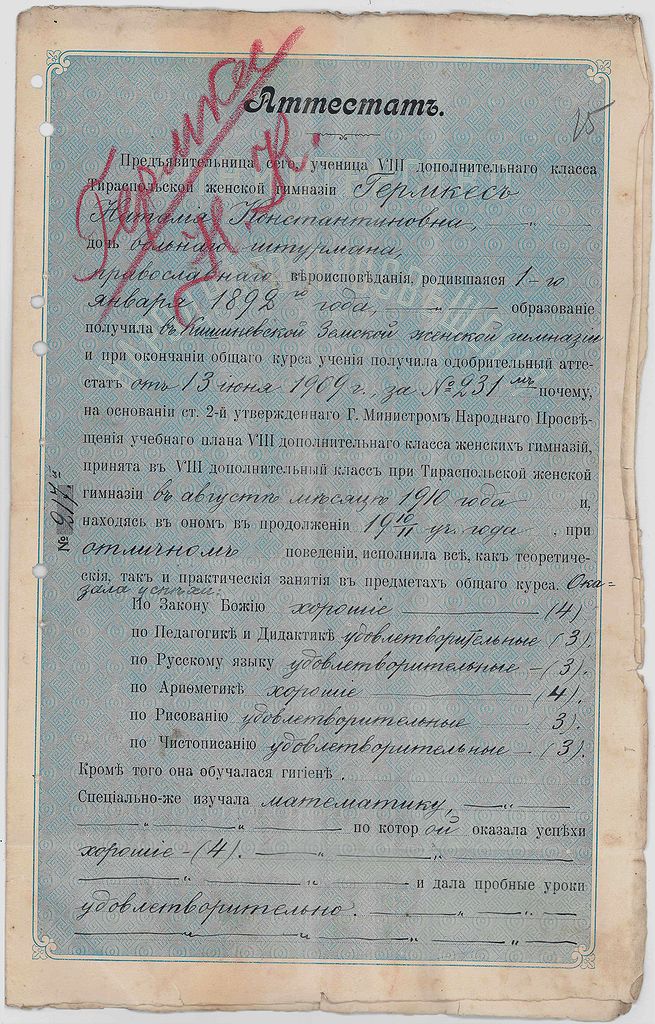 Гермкес
Н. К.
15
Аттестатъ.
Предъявительница сего, ученица VIII дополнительнаго класса
Тираспольской женской гимназіи Гермкесъ
Наталія Константиновна, — „ —
дочь вольнаго штурмана,
православнаго вѣроисповѣданія, родившаяся 1-го
января 1892 го года, — „ — образованіе
получила въ Кишиневской Земской женской гимназіи
и при окончаніи общаго курса ученія получила одобрительный атте-
статъ отъ 13 іюня 1909 г., за № 231 мъ почему,
на основаніи ст. 2-й утвержденнаго Г. Министромъ Народнаго Просвѣ-
щенія учебнаго плана VIII дополнительнаго класса женскихъ гимназій,
принята въ VIII дополнительный классъ при Тираспольской женской
гимназіи въ августѣ мѣсяцѣ 1910 года — и,
находясь въ ономъ въ продолженіи 19 10/11 уч. года , при
отличномъ поведеніи, исполнила всѣ, какъ теоретиче-
скія, такъ и практическія занятія въ предметахъ общаго курса. Ока-
зала успѣхи:
По Закону Божію хорошіе — (4)
по Педагогикѣ и Дидактикѣ удовлетворительные (3).
по Русскому языку удовлетворительные — (3).
по Ариѳметикѣ хорошіе — (4).
по Рисованію удовлетворительные — 3).
по Чистописанію удовлетворительные — (3).
Кромѣ того она обучалася гигіенѣ .
Спеціально-же изучала математику, — „ —
— „ — „ — по котор ой оказала успѣхи
хорошіе — (4). — „ — „ —
— „ — „ — и дала пробные уроки
удовлетворительно. — „ — „ —
— „ — „ — „ — „ —
№